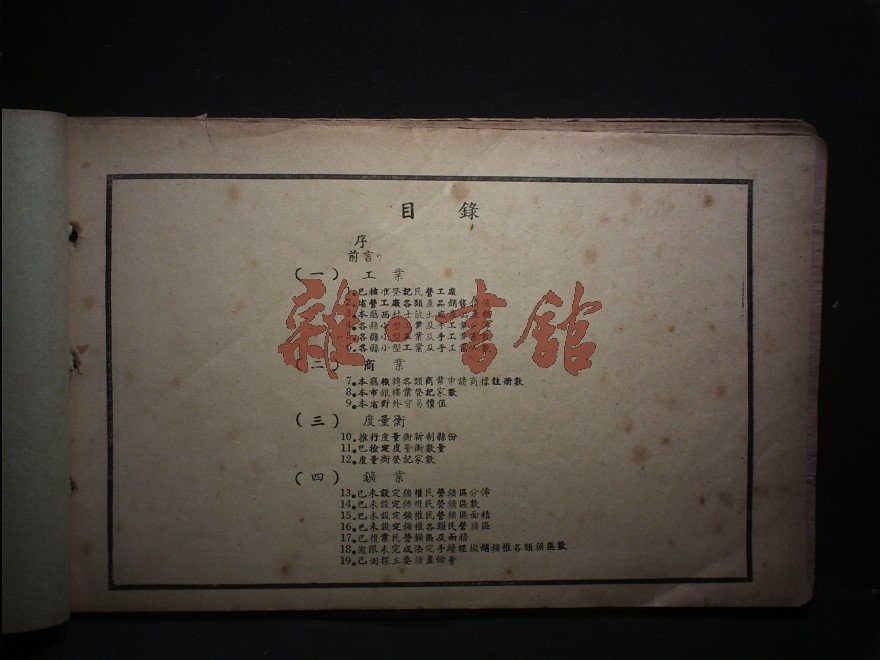 目錄
序
前言
(一) 工業
1.已核准登記民營工廠
2.省營工廠各類產品銷售價值
3.本廳西
4.各縣小型工業及手工業
5.各縣小型工業及手工業
6.各縣小型工業及手工
雜·書館
(二) 商業
7.本廳核轉各類商業申請商標註冊數
8.本市銀樓業登記家數
9.本省對外貿易價值
(三) 度量衡
10.推行度量衡新制縣份
11.已檢定度量衡數量
12.度量衡登記家數
(四) 鑛業
13.已未設定鑛權民營鑛區分佈
14.已未設定鑛權民營鑛區數
15.已未設定鑛權民營鑛區面積
16.已未設定鑛權各類民營鑛區
17.已復業民營鑛區及面積
18.逾限未完成法定手續經撤銷鑛權各類鑛區數
19.已測探主要鑛產儲量